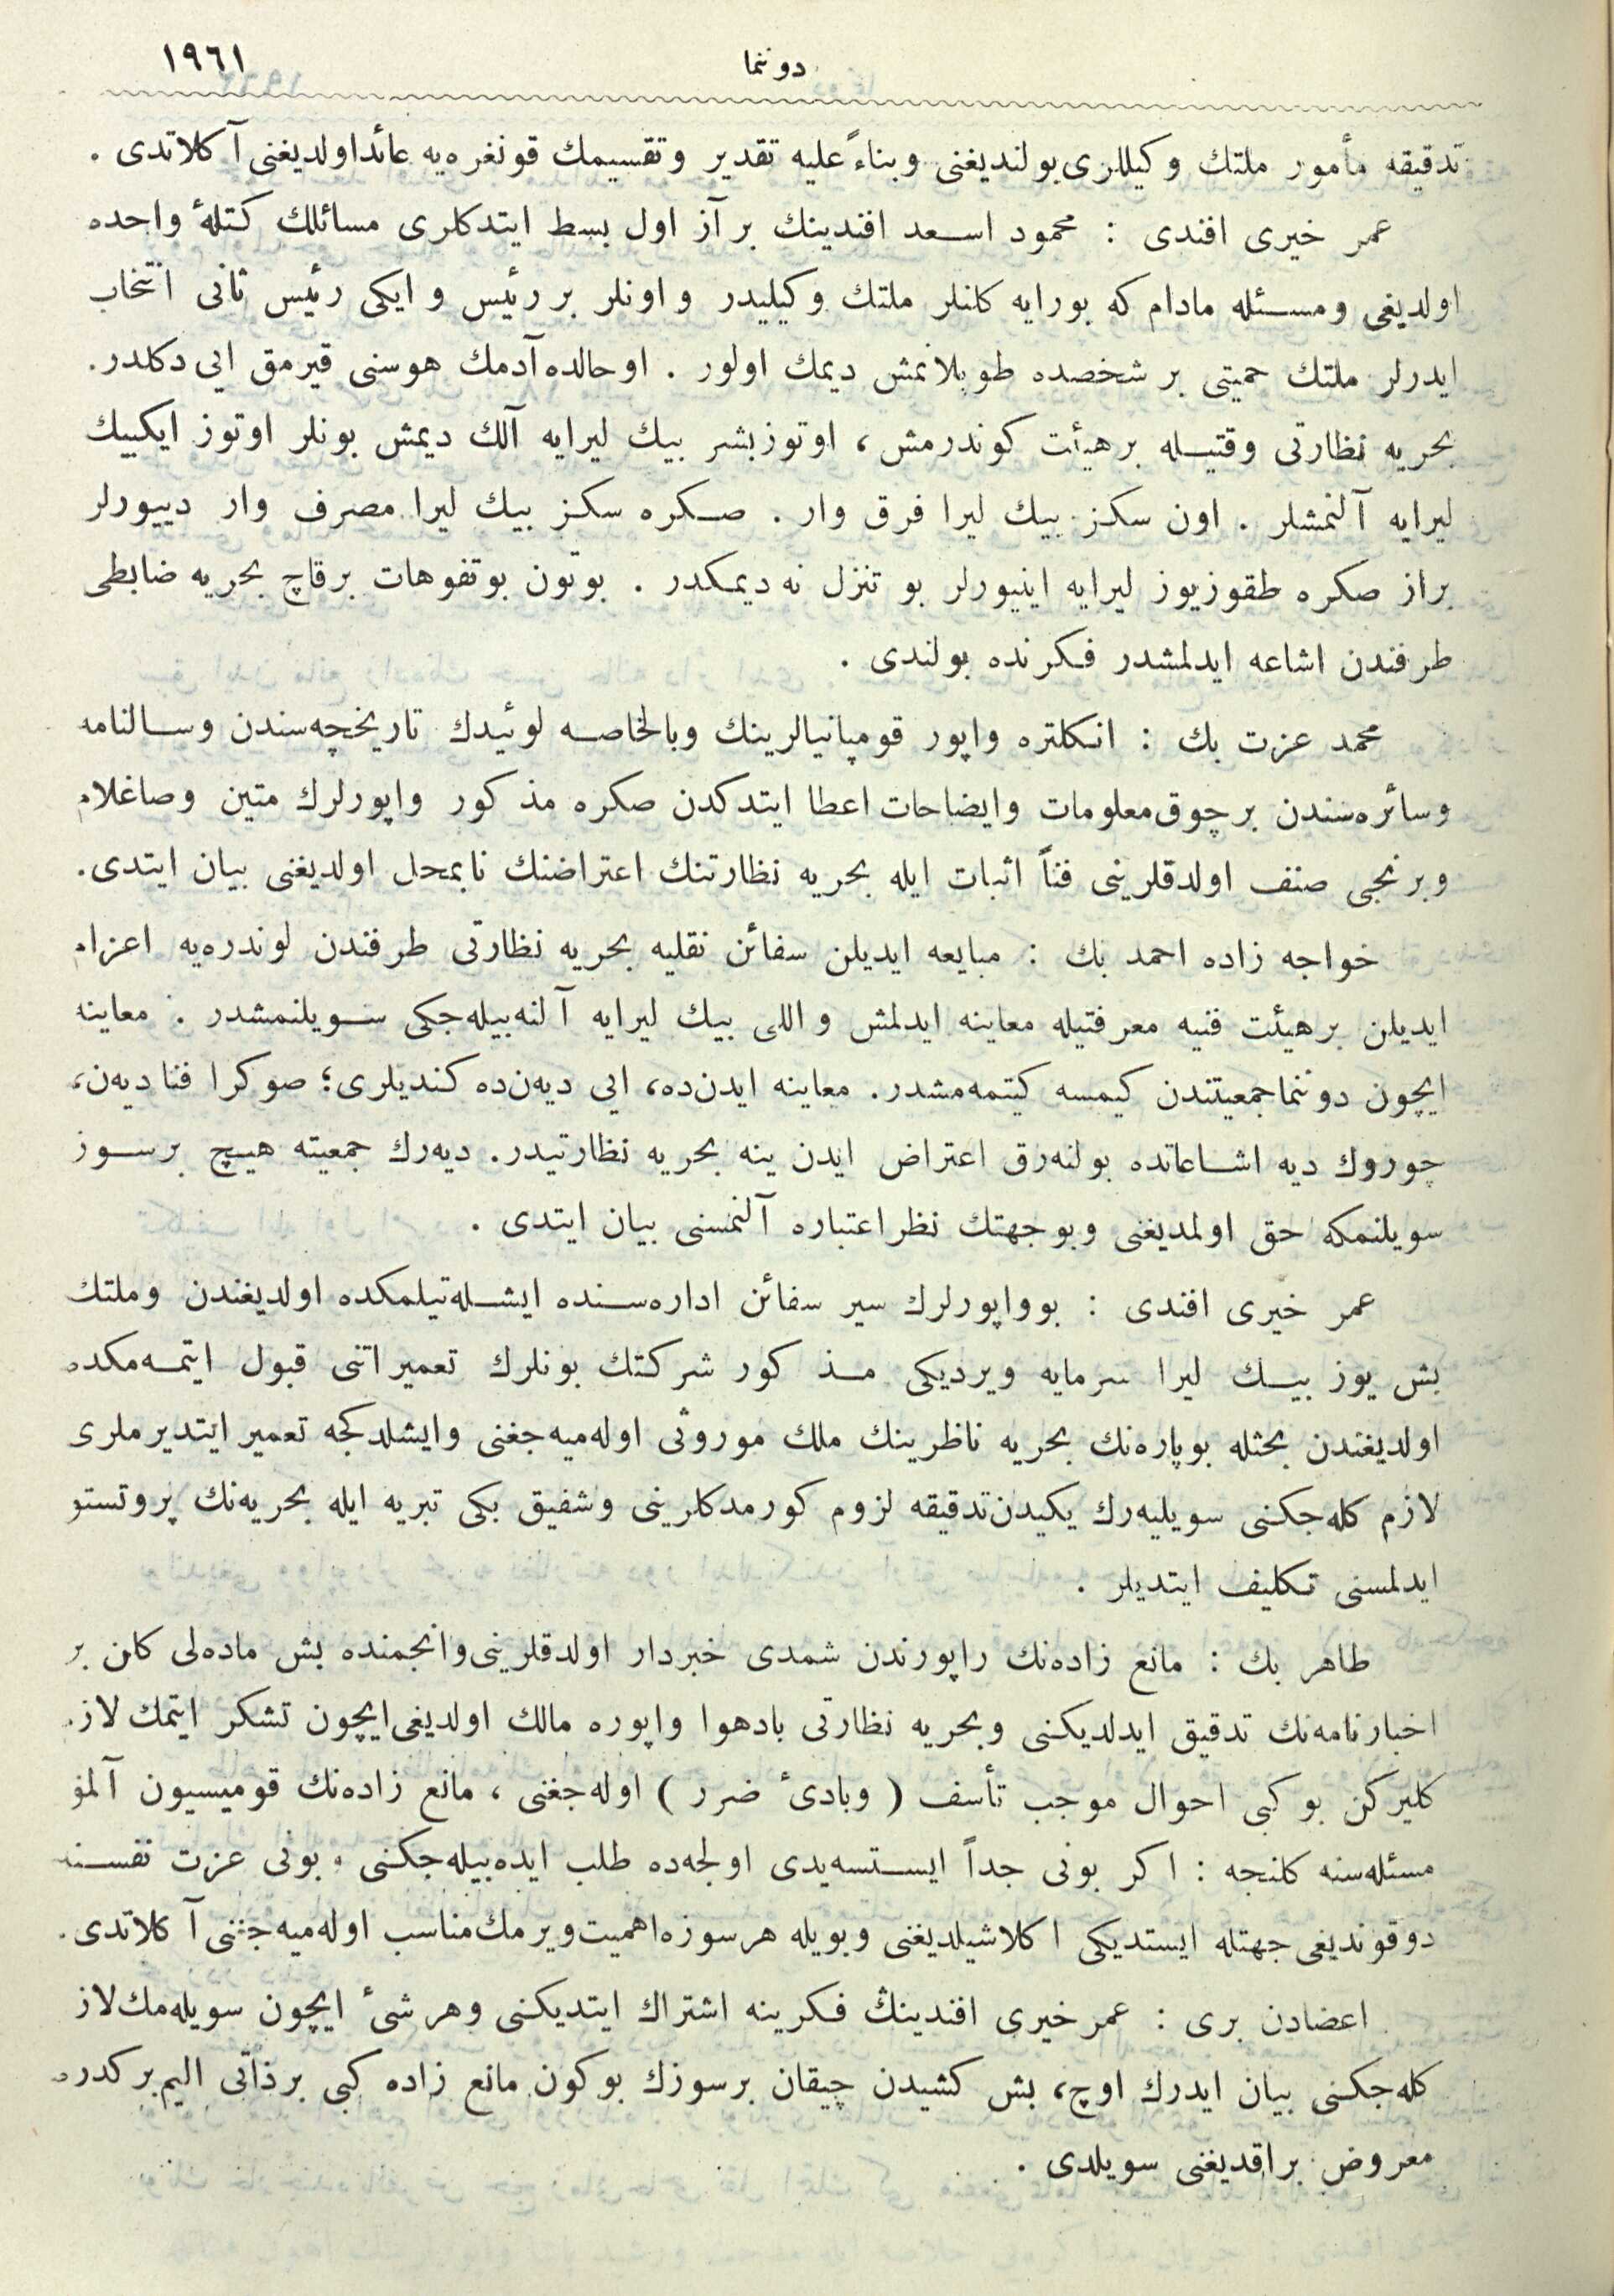 دوننما ١٩٦١
تدقیقه مأمور ملتك وكیللری بولندیغنی وبناءً علیه تقدیر وتقسیمك قونغره‌یه عائد اولدیغنی آكلاتدی .
عمر خیری افندی : محمود اسـعد افندینك بر آز اول بسط ایتدكلری مسائلك كتلهٔ واحده
اولدیغی ومسـئله مادام كه بورایه كلنلر ملتك وكیلیدر و اونلر بر رئیس و ایكی رئیس ثانی انتخاب
ایدرلر ملتك حمیتی بر شخصده طوپلانمش دیمك اولور . اوحالده آدمك هوسنی قیرمق ایی دكلدر.
بحریه نظارتی وقتیـله برهیأت كوندرمش ، اوتوزبشر بیك لیرایه آلك دیمش بونلر اوتوز ایكیبیك
لیرایه آلنمشلر . اون سكز بیك لیرا فرق وار . صـكره سكز بیك لیرا مصرف وار دییورلر
براز صكره طقوزیوز لیرایه اینیورلر بو تنزل نه دیمكدر . بوتون بوتفوهات برقاچ بحریه ضابطی
طرفندن اشاعه ایدلمشدر فكرنده بولندی .
محمد عزت بك : انكلتره واپور قومپانیالرینك وبالخاصـه لوئیدك تاریخچه‌سندن وسـالنامه
وسائره‌سندن برچوق معلومات وایضاحات اعطا ایتدكدن صكره مذكور واپورلرك متین وصاغلام
وبرنجی صنف اولدقلرینی فناً اثبات ایله بحریه نظارتنك اعتراضنك نابمحل اولدیغنی بیان ایتدی.
خواجه زاده احمد بك : مبایعه ایدیلن سفائن نقلیه بحریه نظارتی طرفندن لوندره‌یه اعزام
ایدیلن برهیئت فنیه معرفتیله معاینه ایدلمش و اللی بیك لیرایه آلنه‌بیله‌جكی سـویلنمشدر . معاینه
ایچون دوننما جمعیتندن كیمسه كیتمه‌مشدر. معاینه ایدن‌ده، ایی دیه‌ن‌ده كندیلری؛ صوكرا فنا دیه‌ن،
چوروك دیه اشـاعاتده بولنه‌رق اعتراض ایدن ینه بحریه نظارتیدر. دیه‌رك جمعیته هیـچ برسـوز
سویلنمكه حق اولمدیغنی وبوجهتك نظر اعتباره آلنمسنی بیان ایتدی .
عمر خیری افندی : بوواپورلرك سیر سفائن اداره‌سـنده ایشـله‌تیلمكده اولدیغندن وملتك
بش یوز بیـك لیرا سرمایه ویردیكی مـذكور شركتك بونلرك تعمیراتنی قبول ایتمـه‌مكده
اولدیغندن بحثله بوپاره‌نك بحریه ناظرینك ملك موروثی اوله‌میه‌جغنی وایشلدكجه تعمیر ایتدیرملری
لازم كله‌جكنی سویلیه‌رك یكیدن تدقیقه لزوم كورمدكلرینی وشفیق بكی تبریه ایله بحریه‌نك پروتستو
ایدلمسنی تكلیف ایتدیلر .
طاهر بك : مانع زاده‌نك راپورندن شمدی خبردار اولدقلرینی وانجمنده بش ماده‌لی كلن بر
اخبارنامه‌نك تدقیق ایدلدیكنی وبحریه نظارتی بادهوا واپوره مالك اولدیغی ایچون تشكر ایتمك لاز
كلیركن بو كبی احوال موجب تأسف ( وبادیٔ ضرر ) اوله‌جغنی ، مانع زاده‌نك قومیسیون آلمق
مسئله‌سنه كلنجه : اكر بونی جداً ایسـتسه‌یدی اولجه‌ده طلب ایده‌بیله‌جكنی ، بونی عزت نفسـنه
دوقوندیغی جهتله ایستدیكی اكلاشیلدیغنی وبویله هرسوزه اهمیت ویرمك مناسب اوله‌میه‌جغنی آكلاتدی.
اعضادن بری : عمرخیری افندینڭ فكرینه اشتراك ایتدیكنی وهر شیٔ ایچون سویله‌مك لاز
كله‌جكنی بیان ایدرك اوچ، بش كشیدن چیقان برسوزك بوكون مانع زاده كبی برذاتی الیم بركدره
معروض براقدیغنی سویلدی .